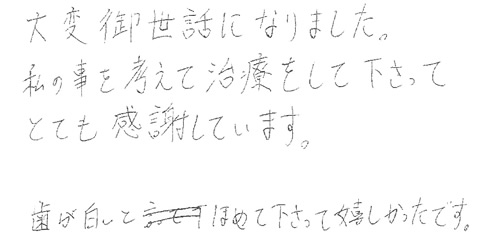 大変御世話になりました。
私の事を考えて治療をして下さって
とても感謝しています。
歯が白いとほめて下さって嬉しかったです。